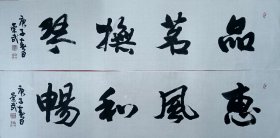 品茗撫琴
庚子
惠風和暢
庚子